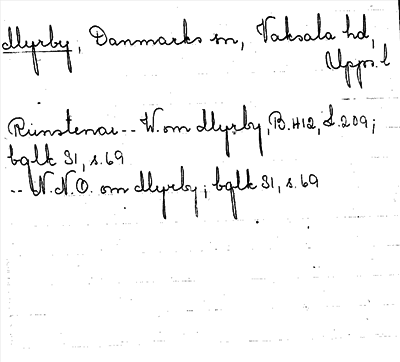 Myrby, Danmarks sn, Vaksala hd,
Upps. l
Runstenar -- W. om Myrby, B. 412, L. 209;
bglk 31, s. 69
-- N.N.O. om Myrby; bglk 31, s. 69